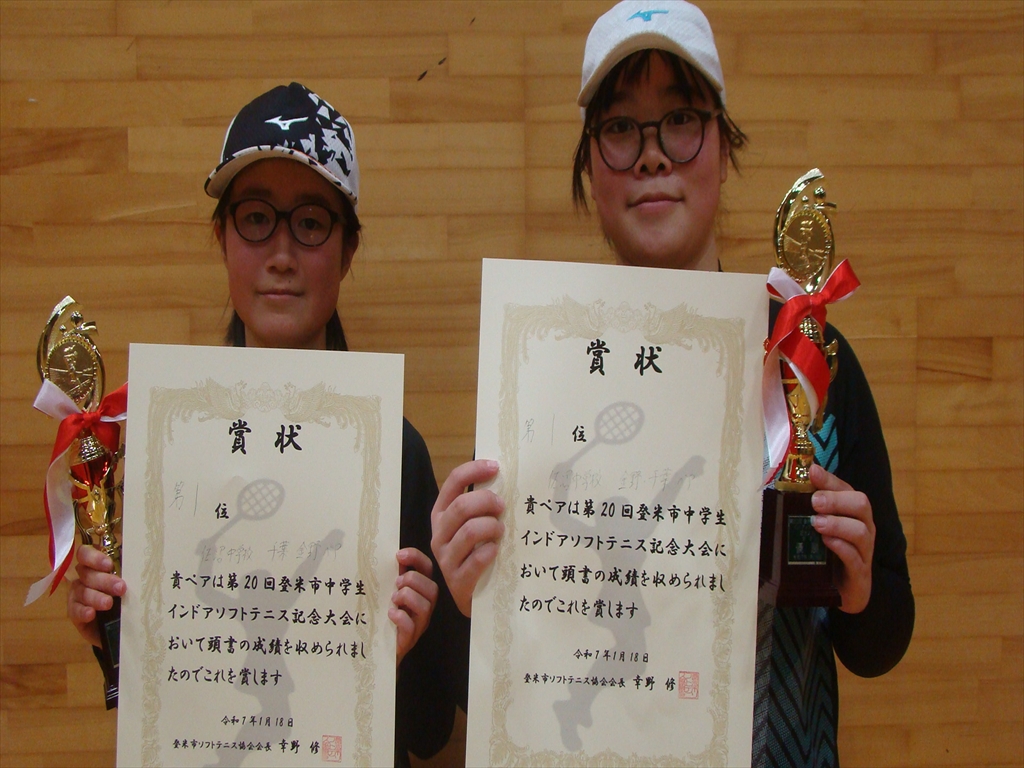 賞状
第1位
貴ペアは第20回登米市中学生
インドアソフトテニス記念大会に
おいて頭書の成績を収められまし
たのでこれを賞します
令和7年1月18日
登米市ソフトテニス協会会長 幸野 修
賞状
第1位
貴ペアは第20回登米市中学生
インドアソフトテニス記念大会に
おいて頭書の成績を収められまし
たのでこれを賞します
令和7年1月18日
登米市ソフトテニス協会会長 幸野 修